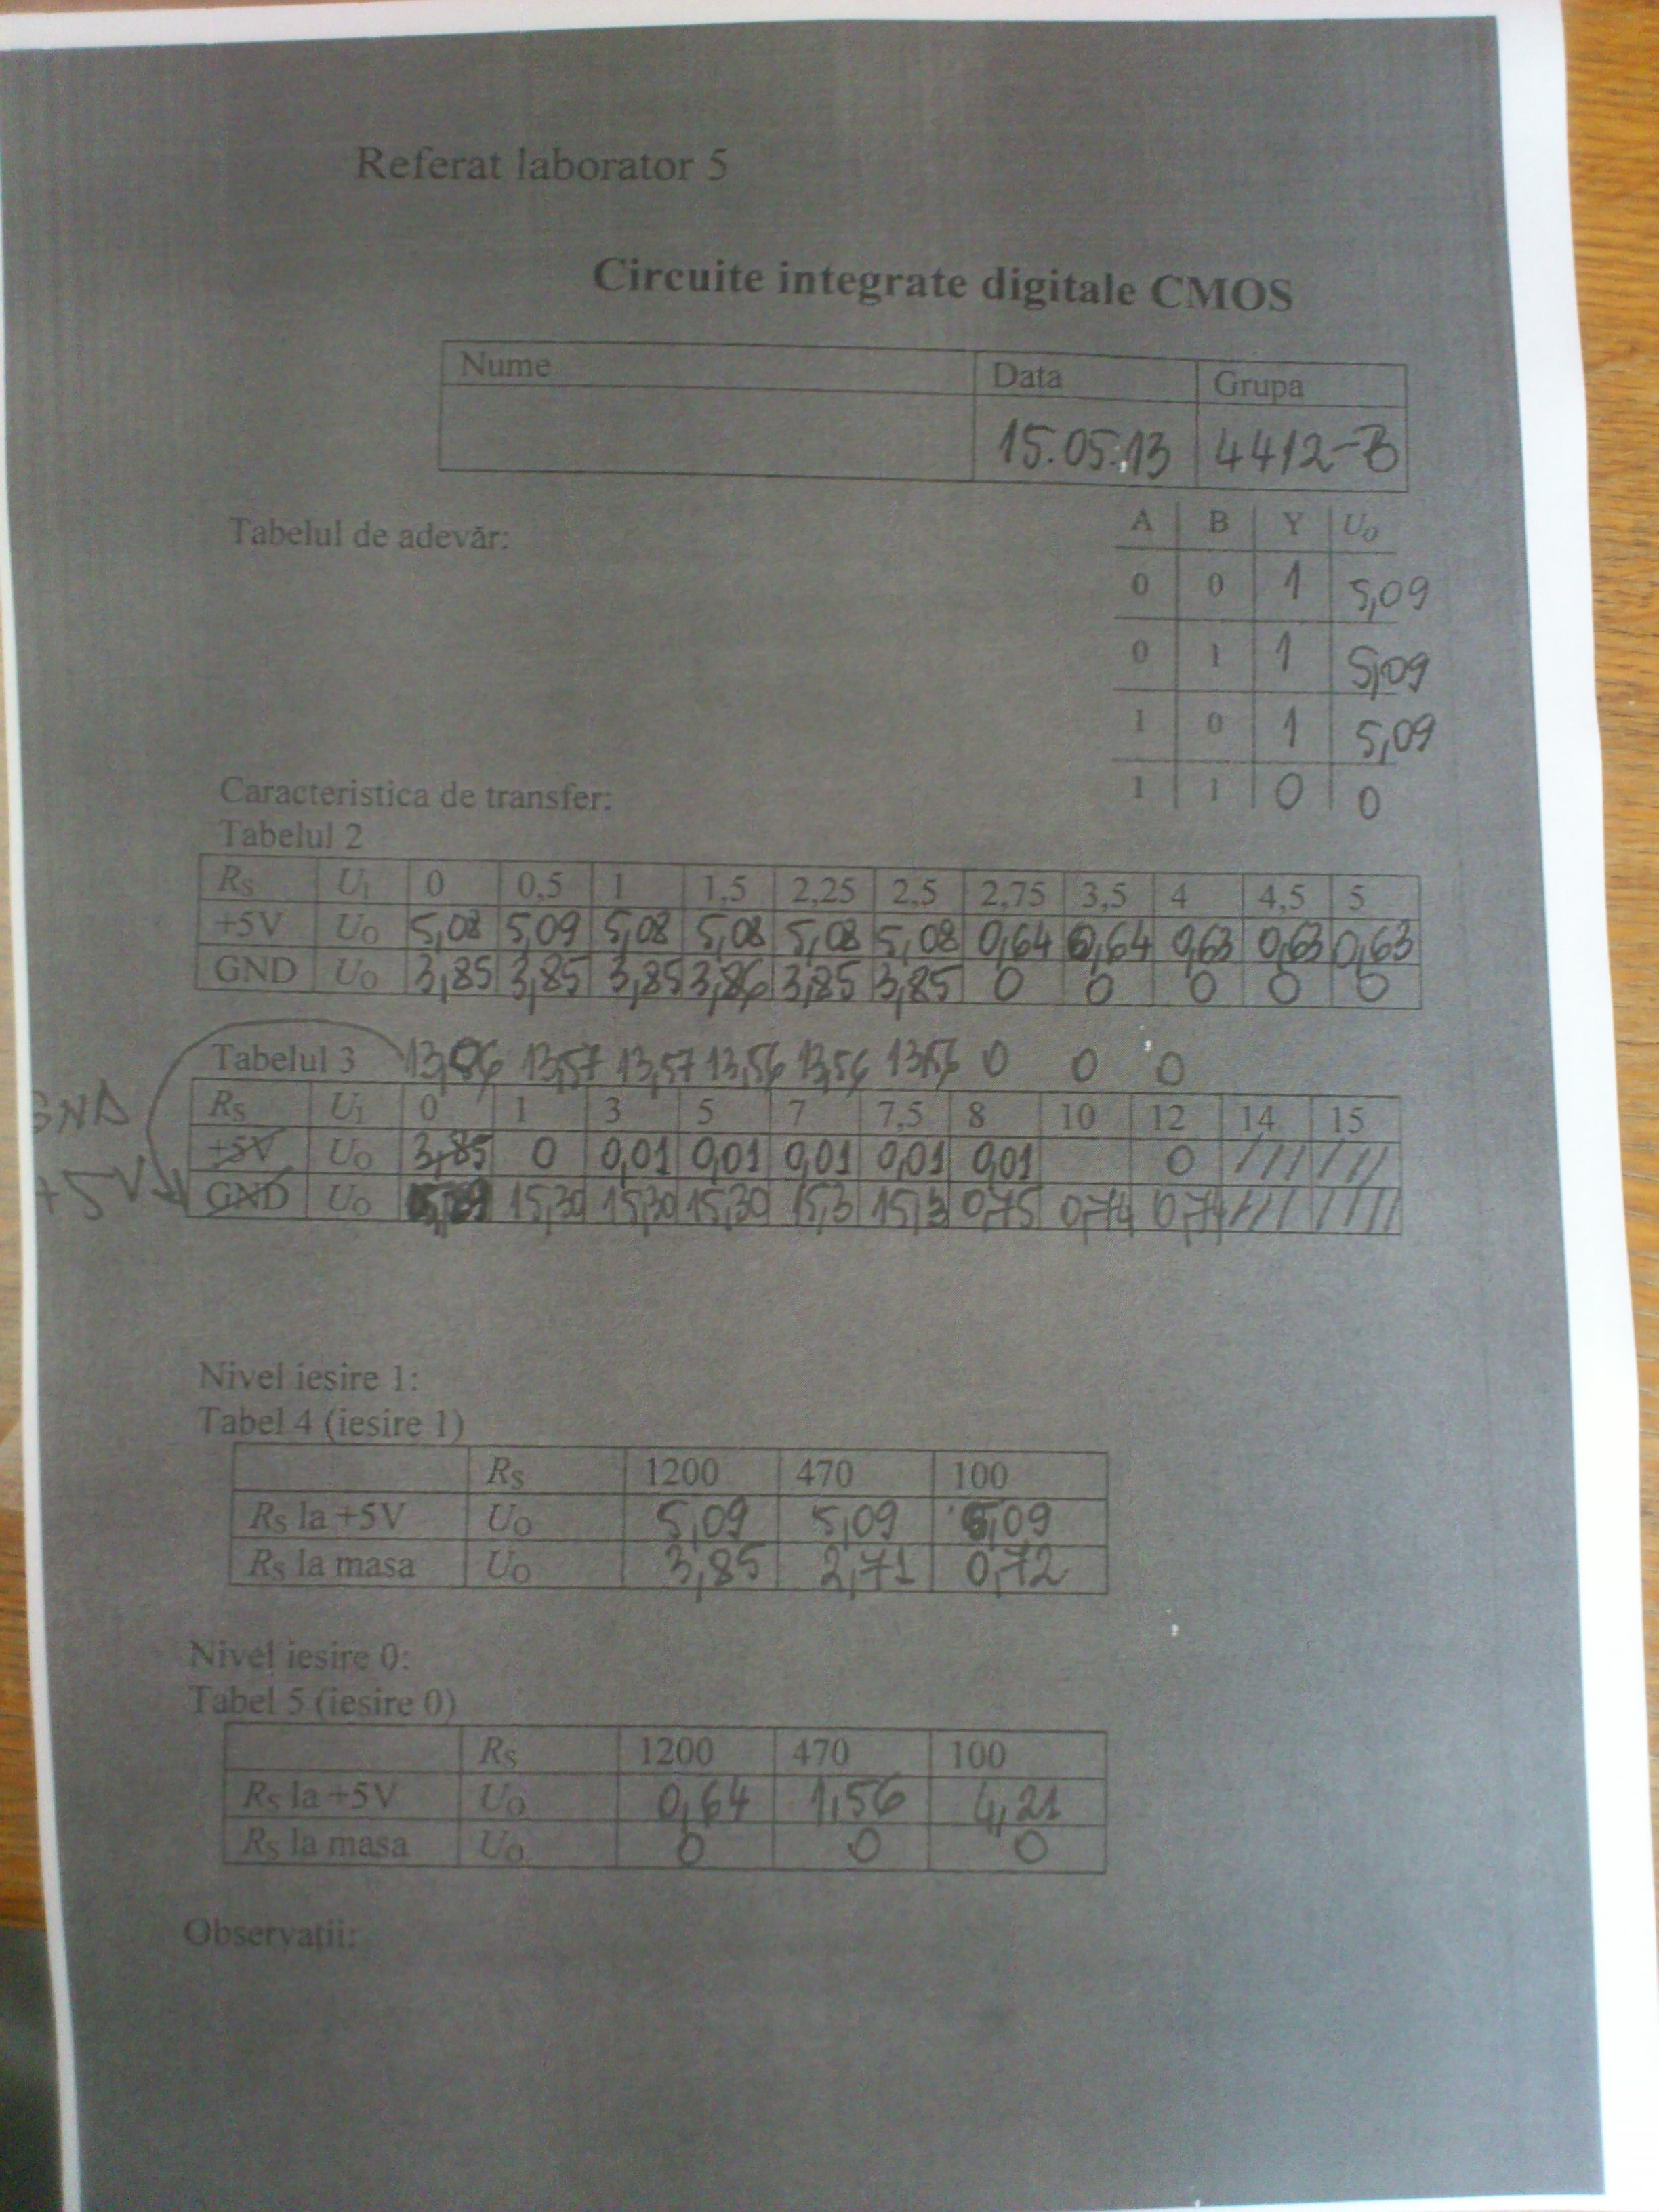 Referat laborator 5
Circuite integrate digitale CMOS
Nume Data Grupa
15.05.13 4412-B
Tabelul de adevăr:
A B Y U₀
0 0 1 5,09
0 1 1 5,09
1 0 1 5,09
1 1 0 0
Caracteristica de transfer:
Tabelul 2
RS UI 0 0,5 1 1,5 2,25 2,5 2,75 3,5 4 4,5 5
+5V UO 5,08 5,09 5,08 5,08 5,08 5,08 0,64 0,64 0,63 0,63 0,63
GND UO 3,85 3,85 3,85 3,86 3,85 3,85 0 0 0 0 0
Tabelul 3 13,57 13,57 13,56 13,56 13,56 0 0 0
RS UI 0 1 3 5 7 7,5 8 10 12 14 15
GND +5V UO 3,85 0 0,01 0,01 0,01 0,01 0,01 0
+5V GND UO 15,30 15,30 15,30 15,3 15,3 0,75 0,74 0,74
Nivel iesire 1:
Tabel 4 (iesire 1)
RS 1200 470 100
RS la +5V UO 5,09 5,09 5,09
RS la masa UO 3,85 2,71 0,72
Nivel iesire 0:
Tabel 5 (iesire 0)
RS 1200 470 100
RS la +5V UO 0,64 1,56 4,21
RS la masa UO 0 0 0
Observaţii: